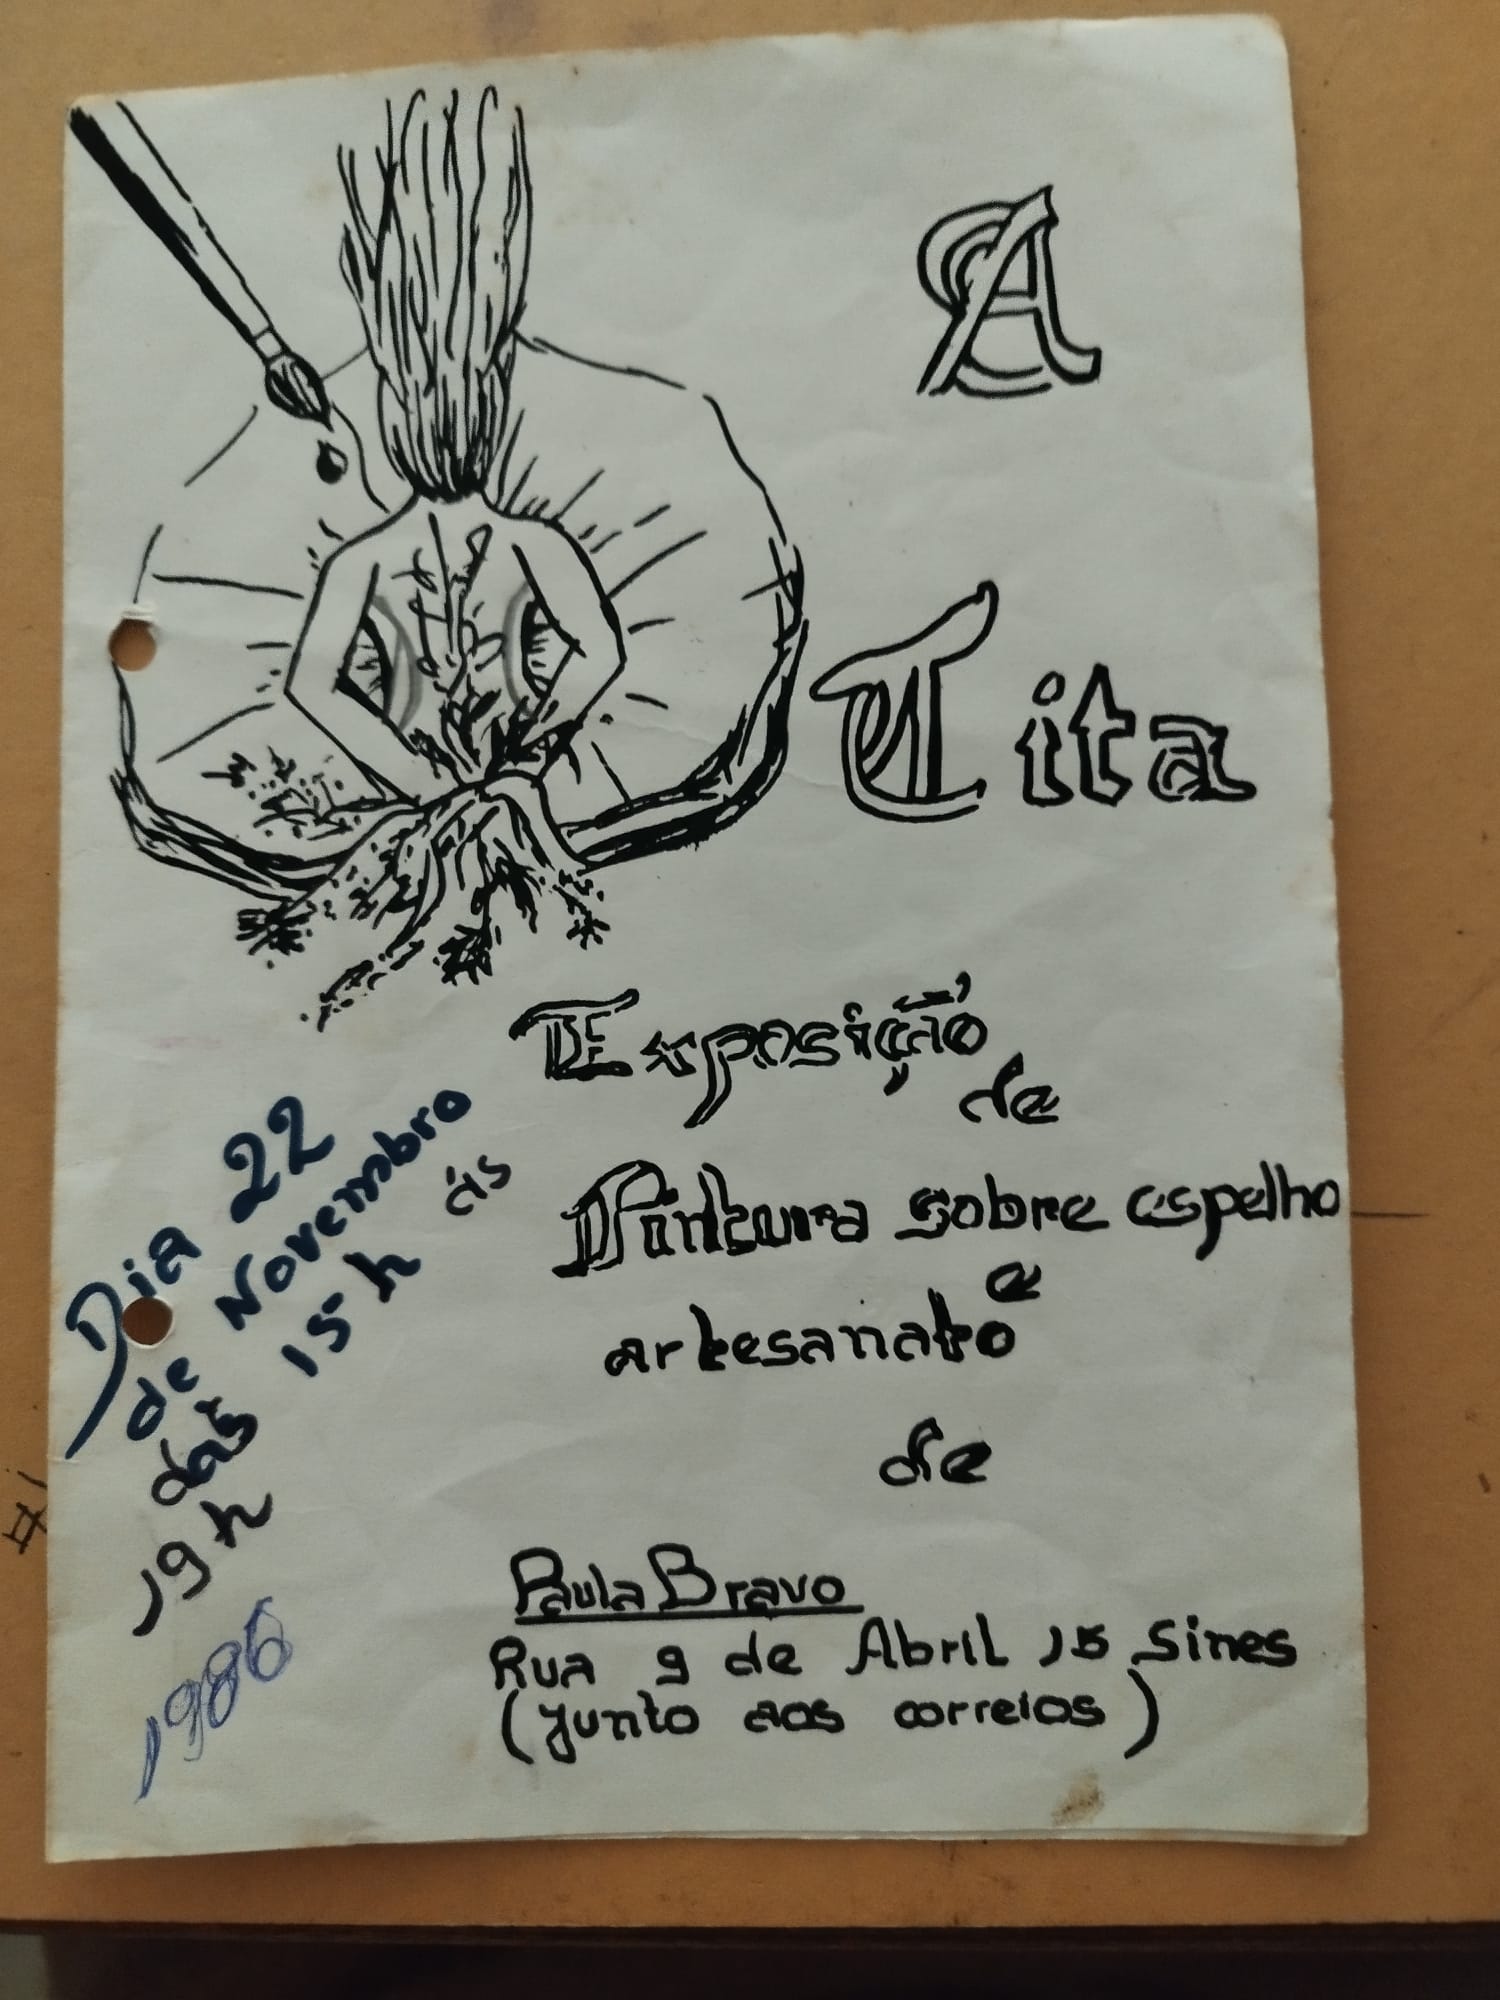 A
Tita
Exposição
de
Pintura sobre espelho
e
artesanato
de
Paula Bravo
Rua 9 de Abril 15 Sines
(junto aos correios)
Dia 22
de Novembro
das 15h às
19h
1986